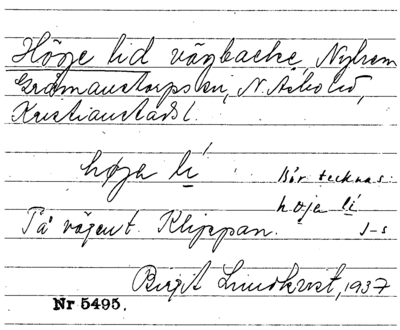 Höje lid vägbacke, Nyhem
Gråmanstorps sn, N. Åsbo hd,
Kristianstads l.
høja lí
Bör tecknas:
høja lí
På vägen t. Klippan.
J-s
Birgit Lindkvist, 1937
Nr 5495.